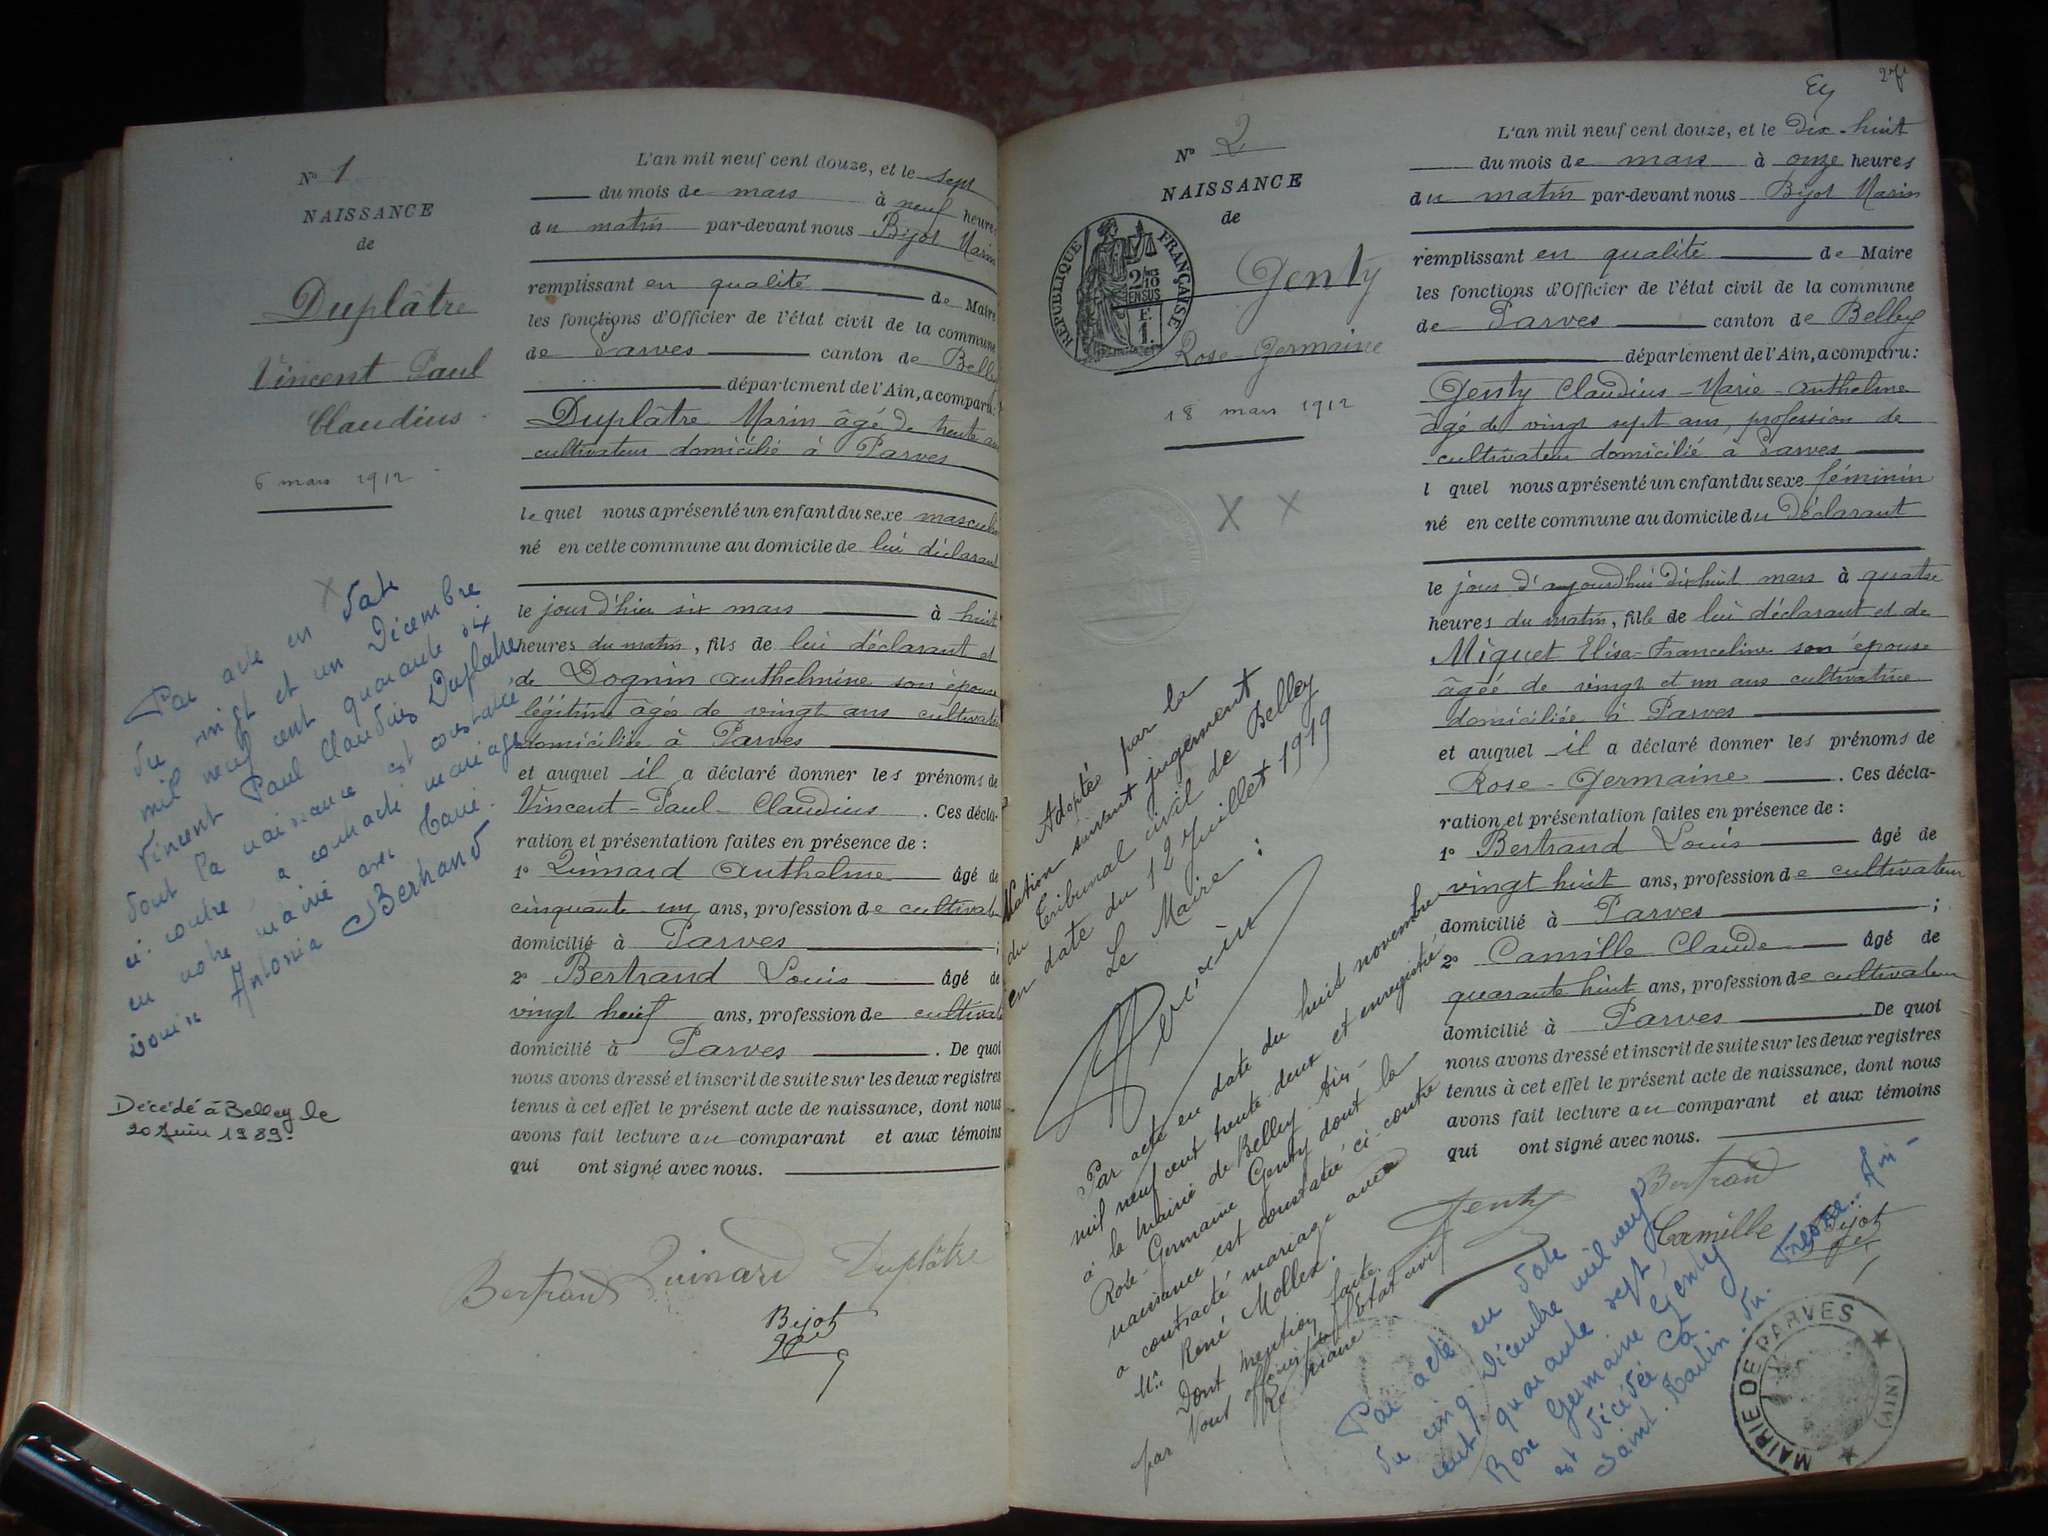 N° 1
NAISSANCE
de
Duplâtre
Vincent Paul
Claudius
6 mars 1912
Par acte en date
du vingt et un Décembre
mil neuf cent quarante six
Vincent Paul Claudius Duplatre
dont la naissance est constatée
ci-contre, a contracté mariage
en notre mairie avec
Antonia Bertrand
Décédé à Belley le
20 Juin 1989.
L'an mil neuf cent douze, et le sept
du mois de mars à neuf heures
du matin par-devant nous Bijot Marin
remplissant en qualité de Maire
les fonctions d'Officier de l'état civil de la commune
de Parves canton de Belley
département de l'Ain, a comparu:
Duplâtre Marin âgé de trente ans
cultivateur domicilié à Parves
le quel nous a présenté un enfant du sexe masculin
né en cette commune au domicile de lui déclarant
le jour d'hier six mars à huit
heures du matin, fils de lui déclarant et
de Dognin Anthelmine son épouse
légitime âgée de vingt ans cultivatrice
domiciliée à Parves
et auquel il a déclaré donner les prénoms de
Vincent-Paul-Claudius . Ces décla-
ration et présentation faites en présence de :
1° Quinard Anthelme âgé de
cinquante un ans, profession de cultivateur
domicilié à Parves ;
2° Bertrand Louis âgé de
vingt huit ans, profession de cultivateur
domicilié à Parves . De quoi
nous avons dressé et inscrit de suite sur les deux registres
tenus à cet effet le présent acte de naissance, dont nous
avons fait lecture au comparant et aux témoins
qui ont signé avec nous.
Bertrand Quinard Duplâtre
Bijot
N° 2
NAISSANCE
de
RÉPUBLIQUE FRANÇAISE
2/10
EN SUS
F.
1.
Genty
Rose-Germaine
18 mars 1912
X X
Adoptée par la
Nation suivant jugement
du Tribunal civil de Belley
en date du 12 Juillet 1919
Le Maire :
Par acte en date du huit novembre
mil neuf cent trente-deux et enregistré
à la mairie de Belley - Ain -
Rose-Germaine Genty dont la
naissance est constatée ci-contre
a contracté mariage avec
Mr. René Mollex.
Dont mention faite
par nous officier de l'état civil
Le Maire
L'an mil neuf cent douze, et le Dix-huit
du mois de mars à onze heures
du matin par-devant nous Bijot Marin
remplissant en qualité de Maire
les fonctions d'Officier de l'état civil de la commune
de Parves canton de Belley
département de l'Ain, a comparu:
Genty Claudius-Marie-Anthelme
âgé de vingt sept ans, profession de
cultivateur domicilié à Parves
l quel nous a présenté un enfant du sexe féminin
né en cette commune au domicile du Déclarant
le jour d'aujourd'hui dix huit mars à quatre
heures du matin, fille de lui déclarant et de
Miguet Elisa-Franceline son épouse
âgée de vingt et un ans cultivatrice
domiciliée à Parves
et auquel il a déclaré donner les prénoms de
Rose-Germaine . Ces décla-
ration et présentation faites en présence de :
1° Bertrand Louis âgé de
vingt huit ans, profession de cultivateur
domicilié à Parves ;
2° Camille Claude âgé de
quarante huit ans, profession de cultivateur
domicilié à Parves De quoi
nous avons dressé et inscrit de suite sur les deux registres
tenus à cet effet le présent acte de naissance, dont nous
avons fait lecture au comparant et aux témoins
qui ont signé avec nous.
Genty Bertrand
Camille Bijot
Par acte en date
du cinq Décembre mil neuf
cent quarante sept,
Rose Germaine Genty
est décédée à
Saint-Paulin
MAIRIE DE PARVES
(AIN)